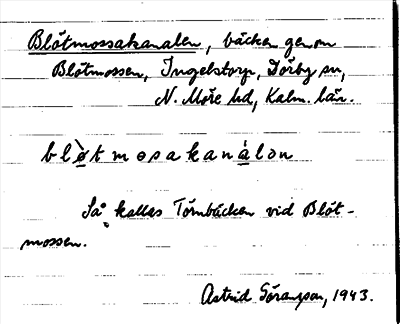 Blötmossakanalen, bäcken genom
Blötmossen, Ingelstorp, Dörby sn,
N. Möre hd, Kalm. län.
blø̀tmosakanálən
Så kallas Törnbäcken vid Blöt-
mossen.
Astrid Göransson, 1943.